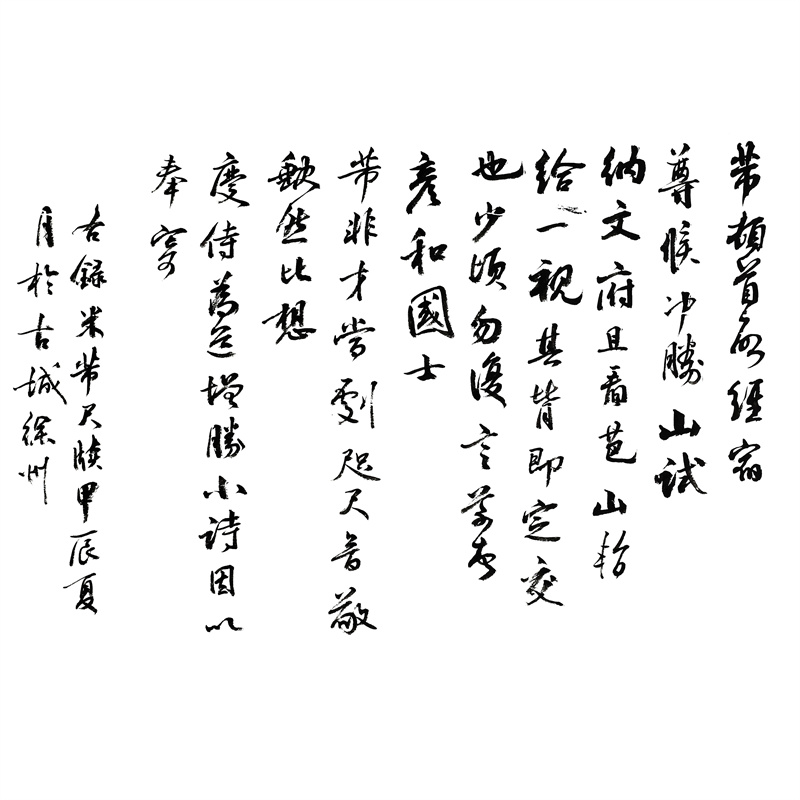 芾頓首啟經宿
尊候冲勝山試
納文府且看芭山暫
給一視其背即定交
也少頃勿復言芾頓首
彥和國士
芾非才當劇咫尺音敬
缺然比想
慶侍為道增勝小詩因以
奉寄
右錄米芾尺牘甲辰夏
月於古城徐州